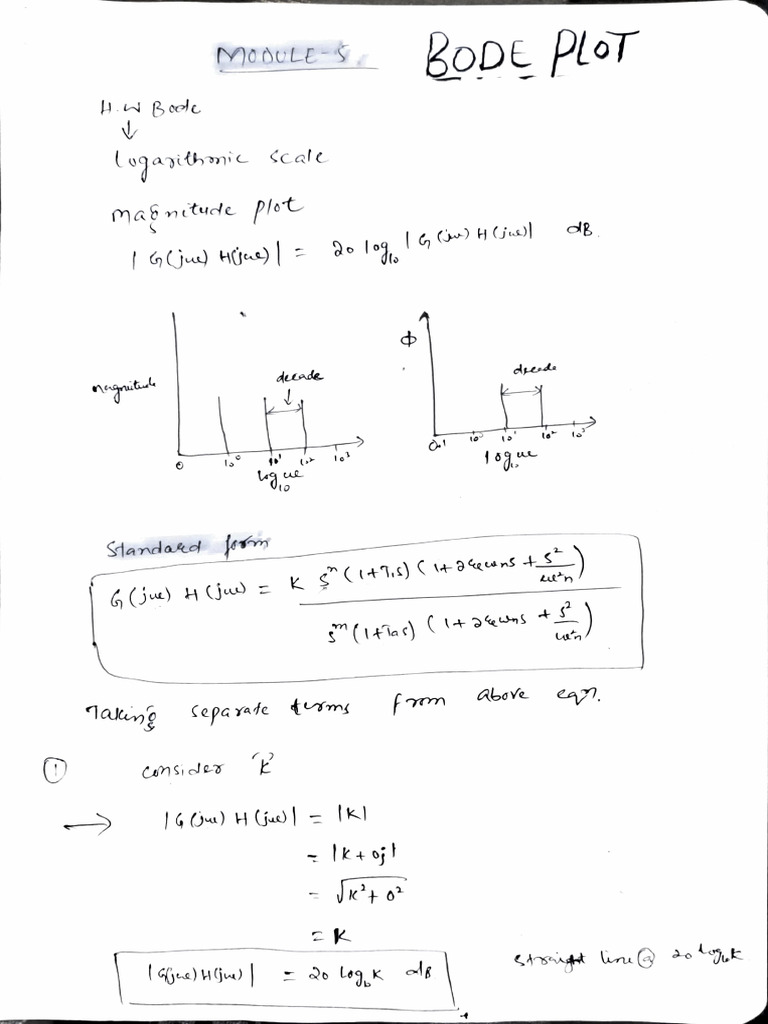 MODULE-5 BODE PLOT
H.W Bode
↓
Logarithmic scale
Magnitude plot
| G(jω) H(jω)| = 20 log₁₀ |G(jω) H(jω)| dB.
Magnitude
decade
0 10⁰ 10¹ 10² 10³
log ω
10
Φ
decade
0.1 10⁰ 10¹ 10² 10³
log ω
10
Standard form
G(jω) H(jω) = K sⁿ (1+T₁s) (1+2ξωns + s²/ω²n)
sᵐ (1+Tas) (1+2ξωns + s²/ω²n)
Taking separate terms from above eqn.
① consider 'K'
→ |G(jω) H(jω)| = |K|
= |K+0j|
= √K²+0²
= K
|G(jω)H(jω)| = 20 log₁₀K dB
straight line @ 20 log₁₀K